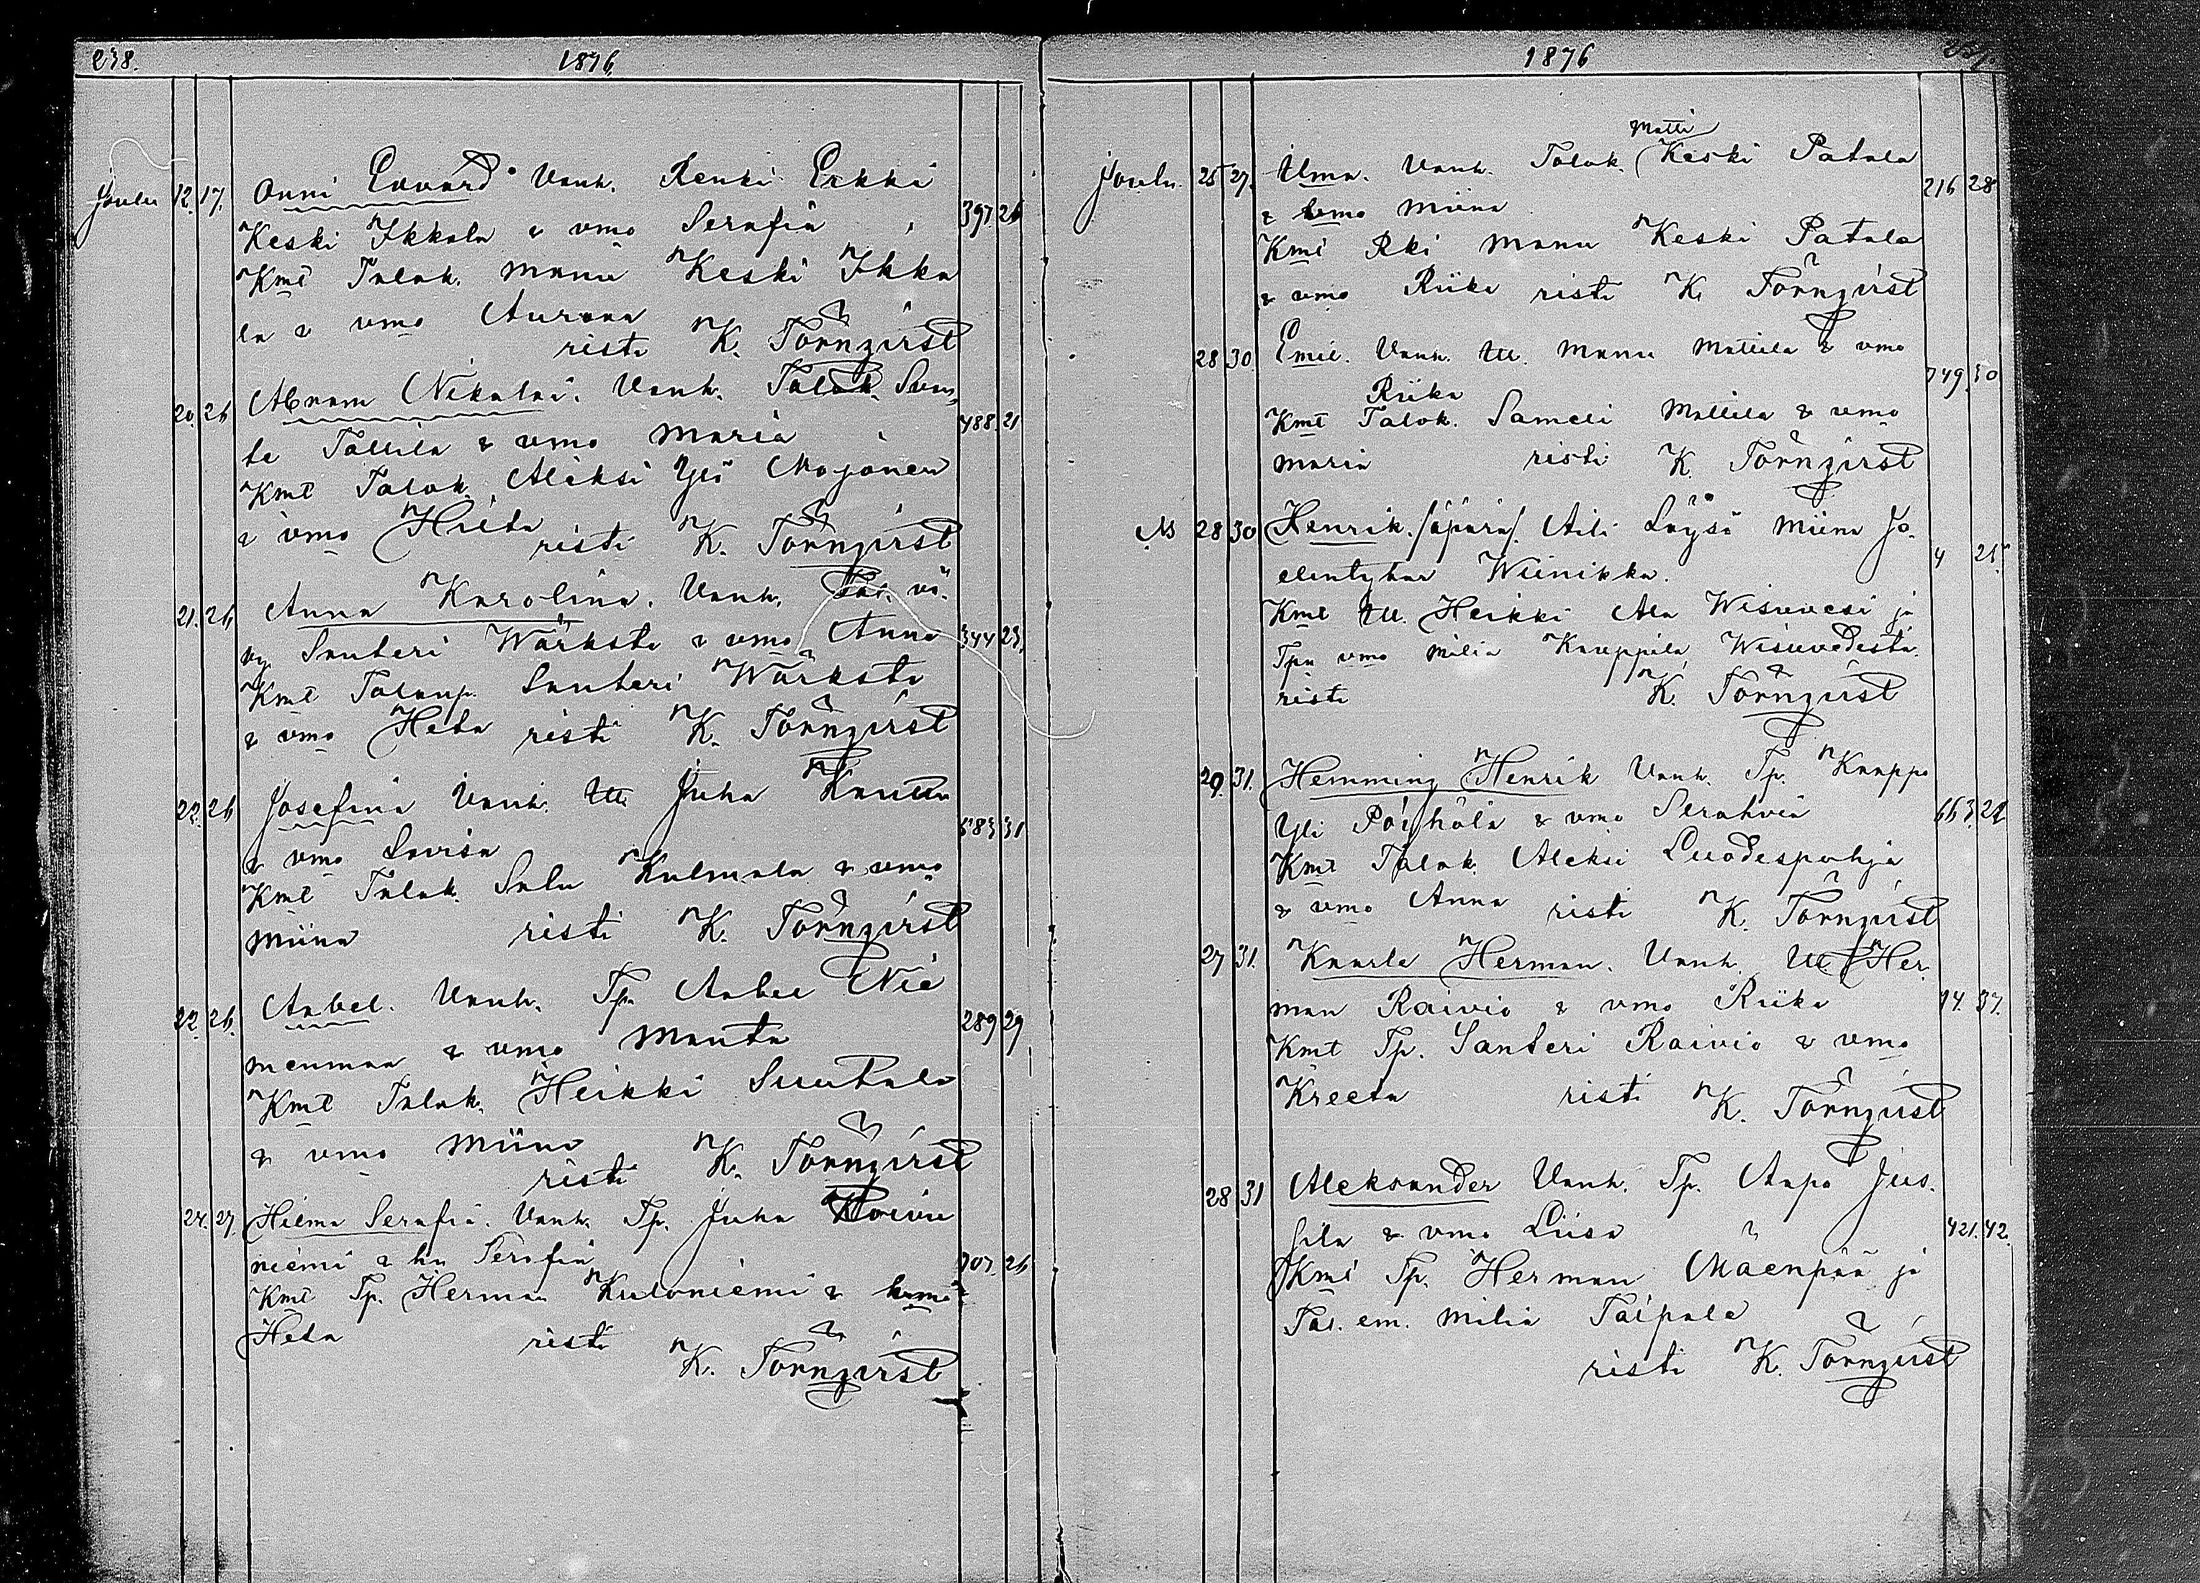 238.
1876
Joulu 12. 17. Onni Edvard Vanh. Renki Erkki
Keski Ikkala & vmo Serafia 397. 26
Kmt Talok. Manu Keski Ikka
la & vmo Aurora
risti K. Törnqvist
20. 26 Abram Nikolai. Vanh. Talok. Svan
te Tallila & vmo Maria 488. 21
Kmt Talok. Aleksi Yli Mojanen
& vmo Hieta
risti K. Törnqvist
21. 26 Anna Karolina. Vanh. Tal. vä.
vy Santeri Wärksti & vmo Anna 344 23.
Kmt Talonp. Santeri Wärksti
& vmo Heta risti K. Törnqvist
22. 26 Josefina Vanh. Itl. Juha
& vmo Lovisa 683 31
Kmt Talok. Salu Kulmala & vmo
Miina risti K. Törnqvist
22. 26. Aabel. Vanh. Tp. Aabel Nie
menmaa & vmo Manta 289 29
Kmt Talok. Heikki Suutala
& vmo Miina
risti K. Törnqvist
24. 27. Hilma Serafia. Vanh. Tp. Juha Koivu
niemi & hn Serafia 707. 26
Kmt Tp. Herman Kuloniemi &
Heta risti
K. Törnqvist
1876
Matti
Joulu. 25 27. Uma. Vanh. Talok. Keski Patala 216 28
& vmo Miina
Kmt Rki Manu Keski Patala
& vmo Riika risti K. Törnqvist
28 30. Emil. Vanh. Itl. Manu Mattila & vmo 749. 30
Riika
Kmt Talok. Sameli Mattila & vmo
Maria risti K. Törnqvist
Ns 28 30 Henrik. /äpärä/. Äiti Löysä Miina Jo- 4 25
elentytär Wiinikka.
Kmt Itl. Heikki Ala Wisuvesi ja
Tpn vmo Milia Kauppila Wisuvedestä
risti K. Törnqvist
29. 31. Hemming Henrik Vanh. Tp. Kaappo
Yli Pöyhölä & vmo Serahvia 663. 28
Kmt Talok. Aleksi Luodespohja
& vmo Anna risti K. Törnqvist
27 31. Kaarle Herman. Vanh. Itl. Her.
man Raivio & vmo Riika 14. 37.
Kmt Tp. Santeri Raivio & vmo
Kreeta risti K. Törnqvist
28 31 Aleksander Vanh. Tp. Aapo Jus.
sila & vmo Liisa 421. 42.
Kmt Tp. Herman Mäenpää ja
Tal. em. Milia Taipale
risti K. Törnqvist